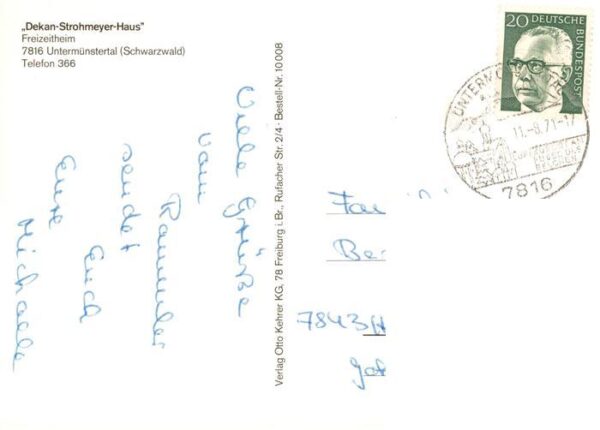 „Dekan-Strohmeyer-Haus"
Freizeitheim
7816 Untermünstertal (Schwarzwald)
Telefon 366
Viele Grüße
vom
sendet
Euch
Eure
Michaela
Verlag Otto Kehrer KG, 78 Freiburg i.Br., Rufacher Str. 2/4 · Bestell-Nr. 10008
20 DEUTSCHE
BUNDESPOST
11.-8.71-17
7816
7843 H